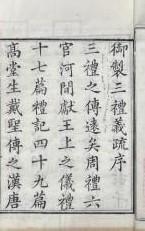 御製三禮義疏序
三禮之傳遠矣周禮六
官河間獻王上之儀禮
十七篇禮記四十九篇
高堂生戴聖傳之漢唐